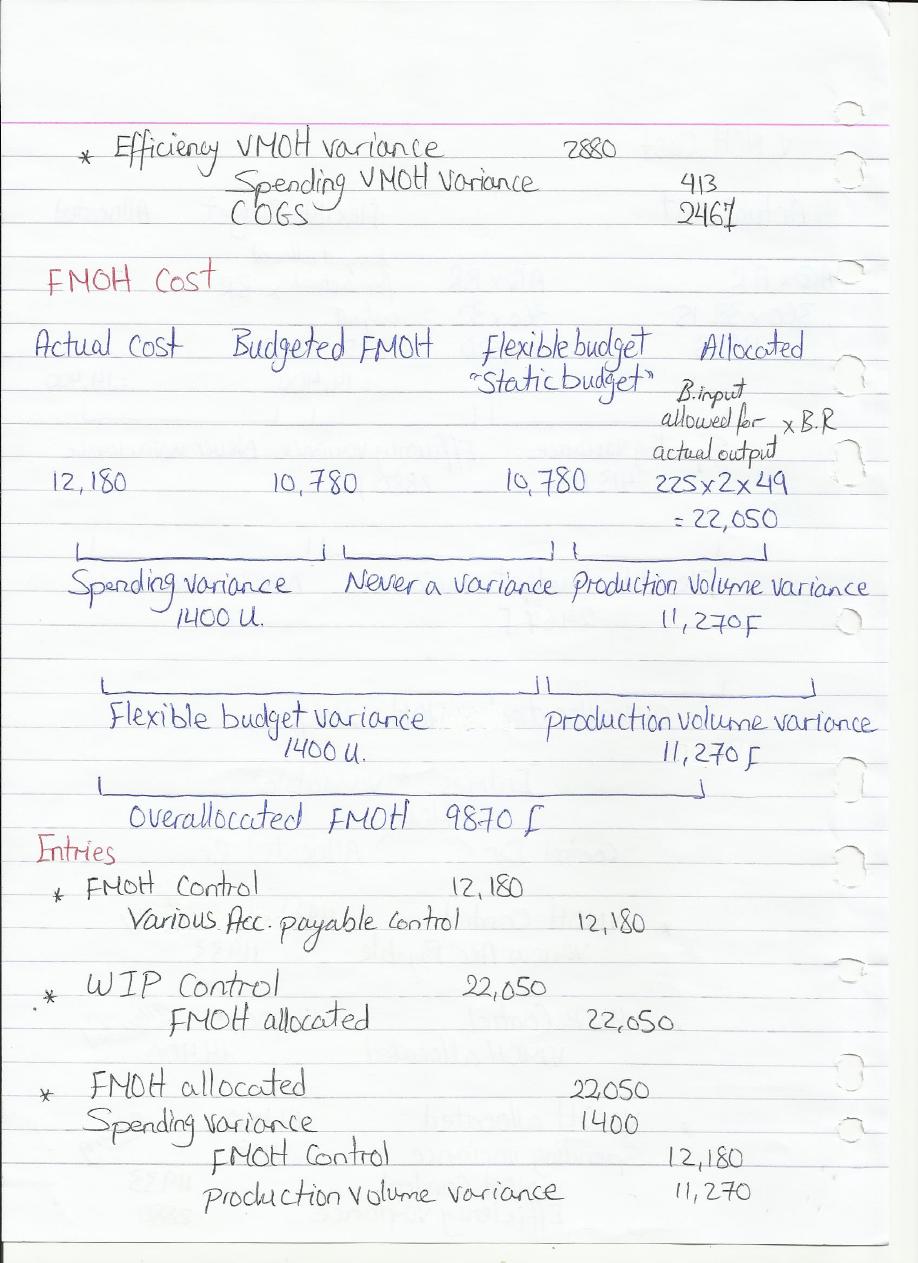 * Efficiency VMOH variance 2880
Spending VMOH Variance 413
COGS 2467
FMOH Cost
Actual Cost Budgeted FMOH Flexible budget Allocated
"Static budget" B.input
allowed for x B.R
actual output
12,180 10,780 10,780 225x2x49
= 22,050
Spending variance Never a variance Production Volume variance
1400 U. 11,270 F
Flexible budget variance production volume variance
1400 U. 11,270 F
Overallocated FMOH 9870 F
Entries
* FMOH Control 12,180
Various Acc. payable Control 12,180
* WIP Control 22,050
FMOH allocated 22,050
* FMOH allocated 22,050
Spending Variance 1400
FMOH Control 12,180
Production Volume variance 11,270